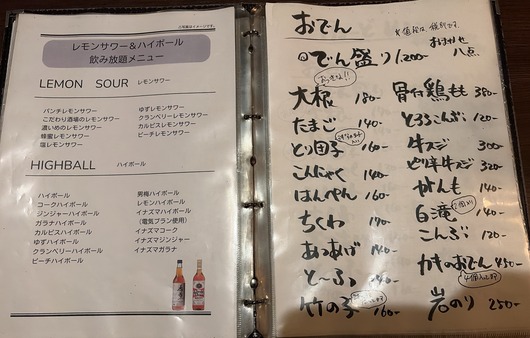 レモンサワー&ハイボール
飲み放題メニュー
LEMON SOUR レモンサワー
パンチレモンサワー
こだわり酒場のレモンサワー
濃いめのレモンサワー
蜂蜜レモンサワー
塩レモンサワー
ゆずレモンサワー
クランベリーレモンサワー
カルピスレモンサワー
ピーチレモンサワー
HIGHBALL ハイボール
ハイボール
コークハイボール
ジンジャーハイボール
ガラナハイボール
カルピスハイボール
ゆずハイボール
クランベリーハイボール
ピーチハイボール
男梅ハイボール
レモンハイボール
イナズマハイボール
(電気ブラン使用)
イナズマコーク
イナズマジンジャー
イナズマガラナ
おでん
おでん盛り 1,200-
おまかせ
八点
大根 180-
たまご 140-
とり団子 160-
こんにゃく 140-
はんぺん 160-
ちくわ 140-
あつあげ 140-
と〜ふ 140-
竹の子 160-
骨付鶏もも 380-
とろろこんぶ 120-
牛スジ 300-
ピリ辛牛スジ 320-
がんも 140-
白滝 140-
こんぶ 120-
カキのおでん 450-
岩のり 250-